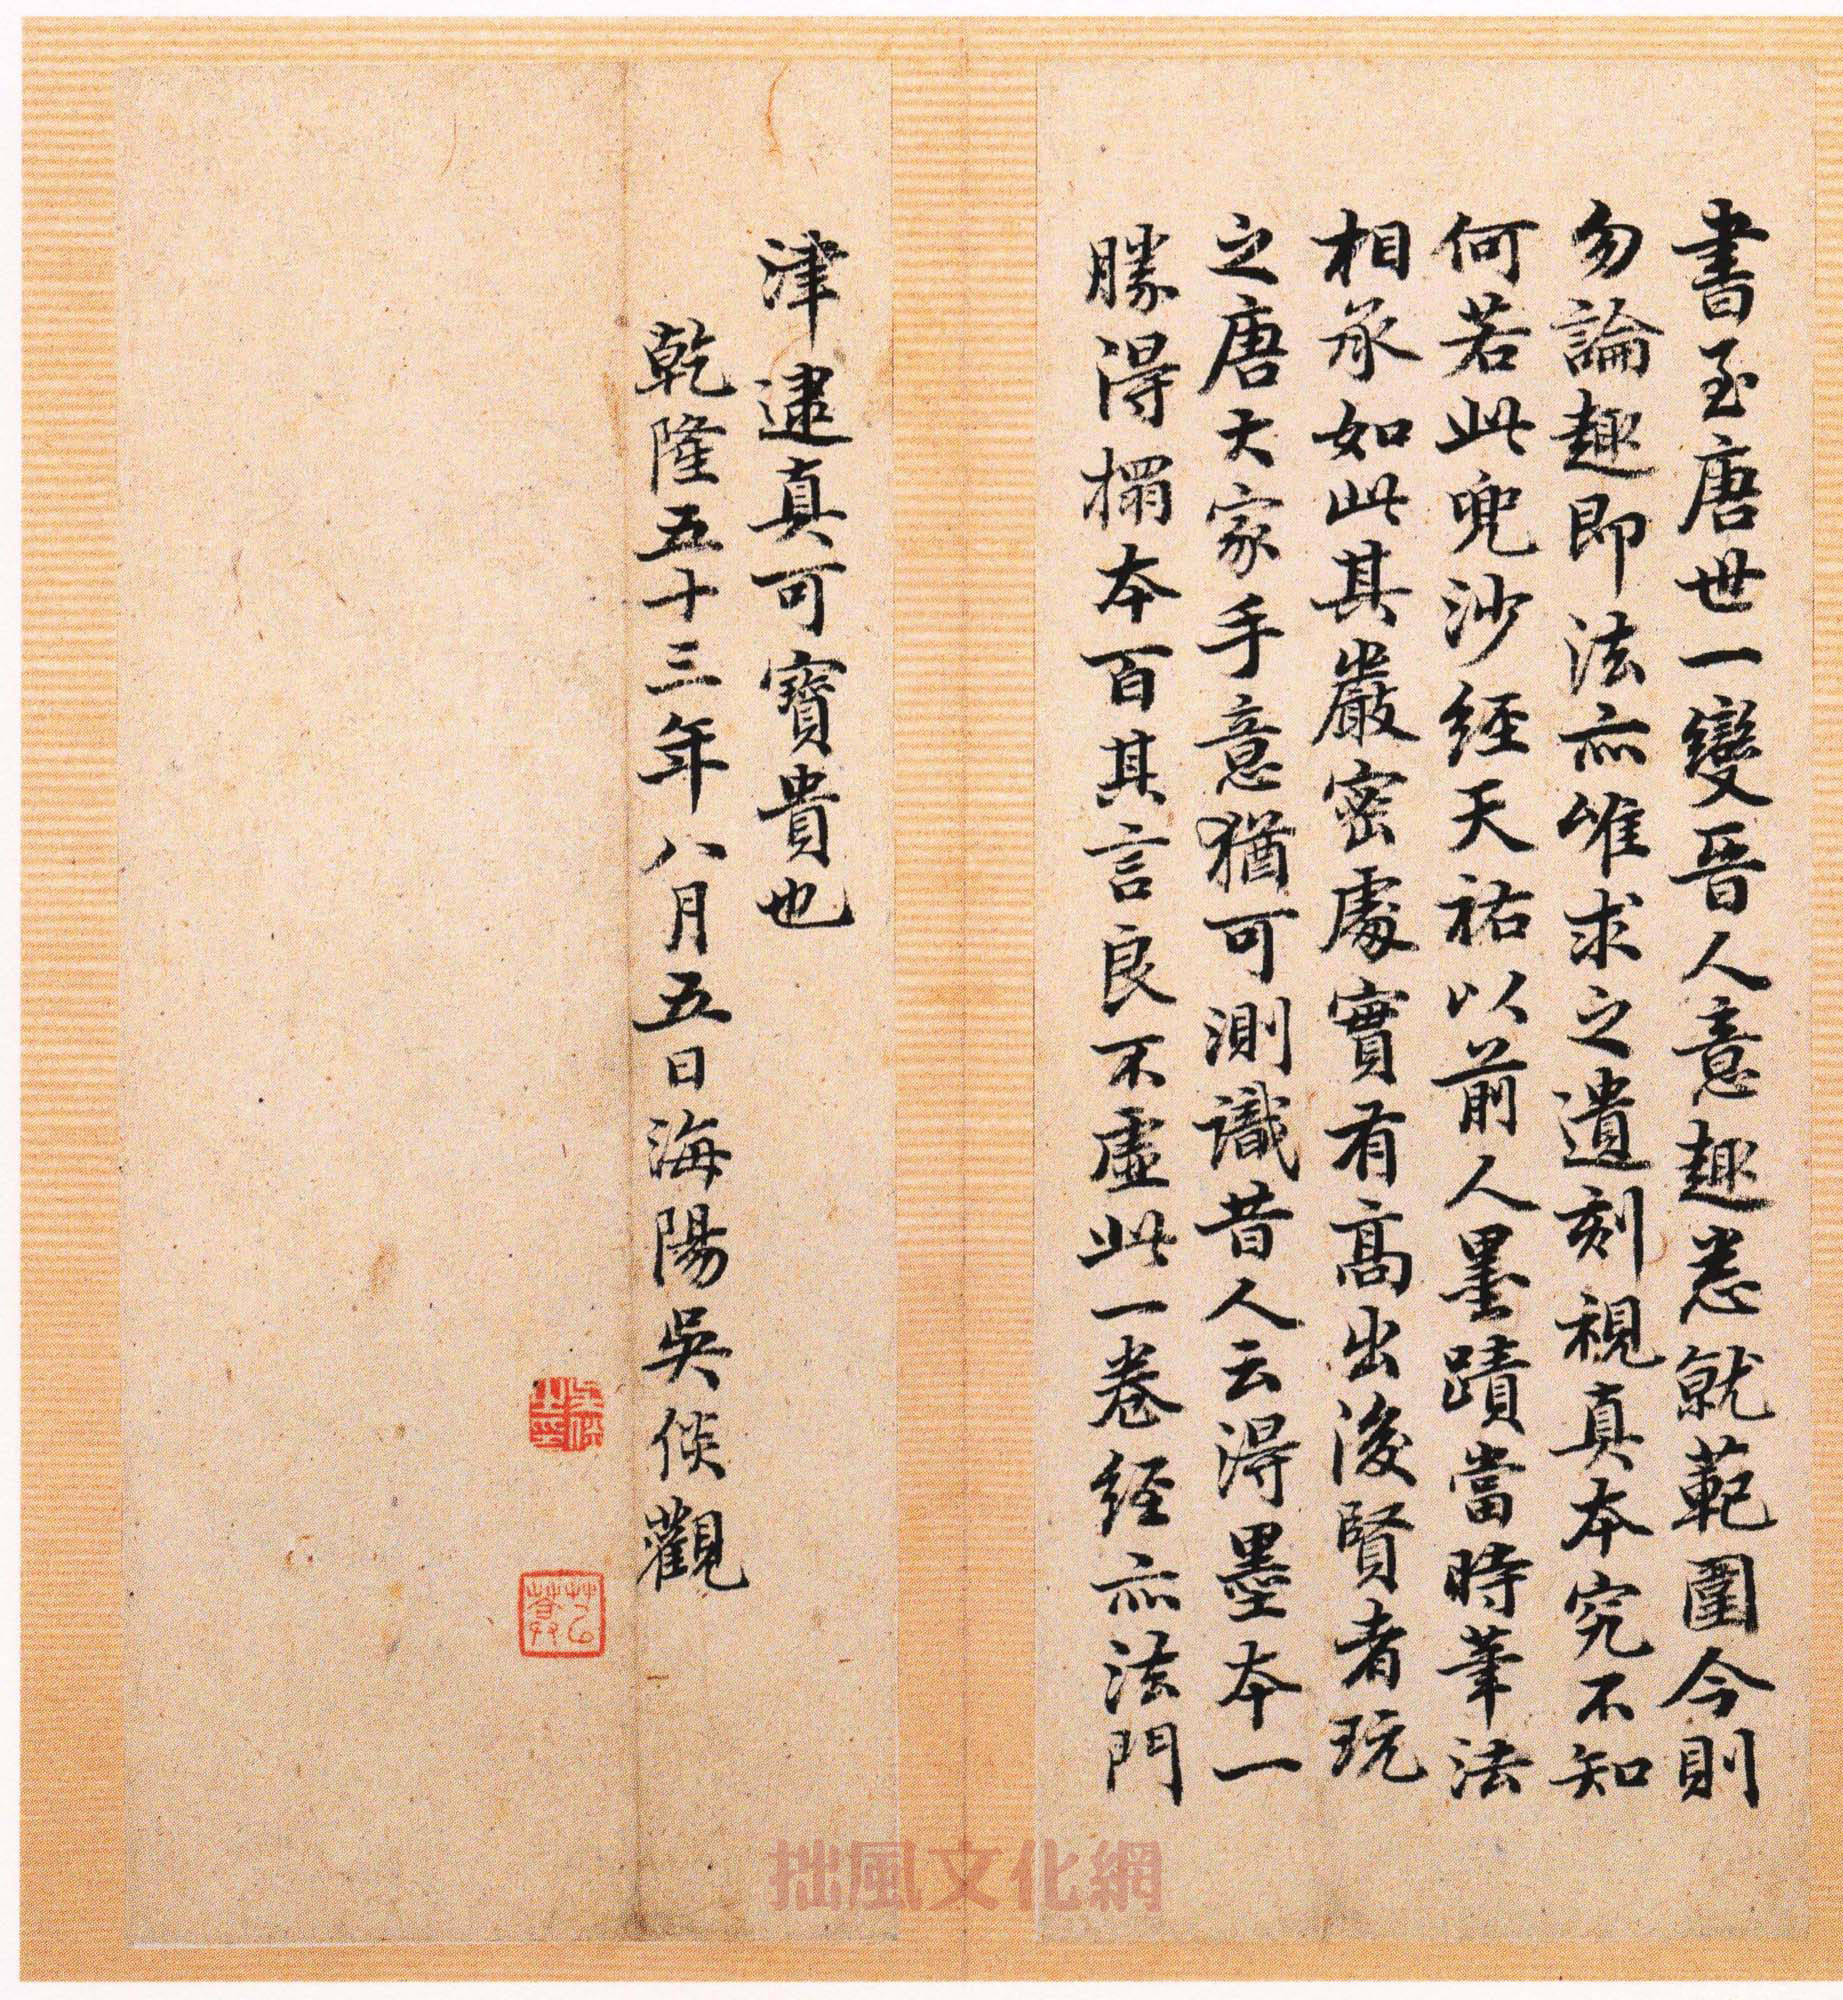 書至唐世一變晉人意趣悉就範圍今則
勿論趣即法亦惟求之遺刻視真本究不知
何若此兜沙經天祐以前人墨蹟當時筆法
相承如此其嚴密處實有高出後賢者玩
之唐大家手意猶可測識昔人云得墨本一
勝得搨本百其言良不虛此一卷經亦法門
津逮真可寶貴也
乾隆五十三年八月五日海陽吳倓觀
拙風文化網